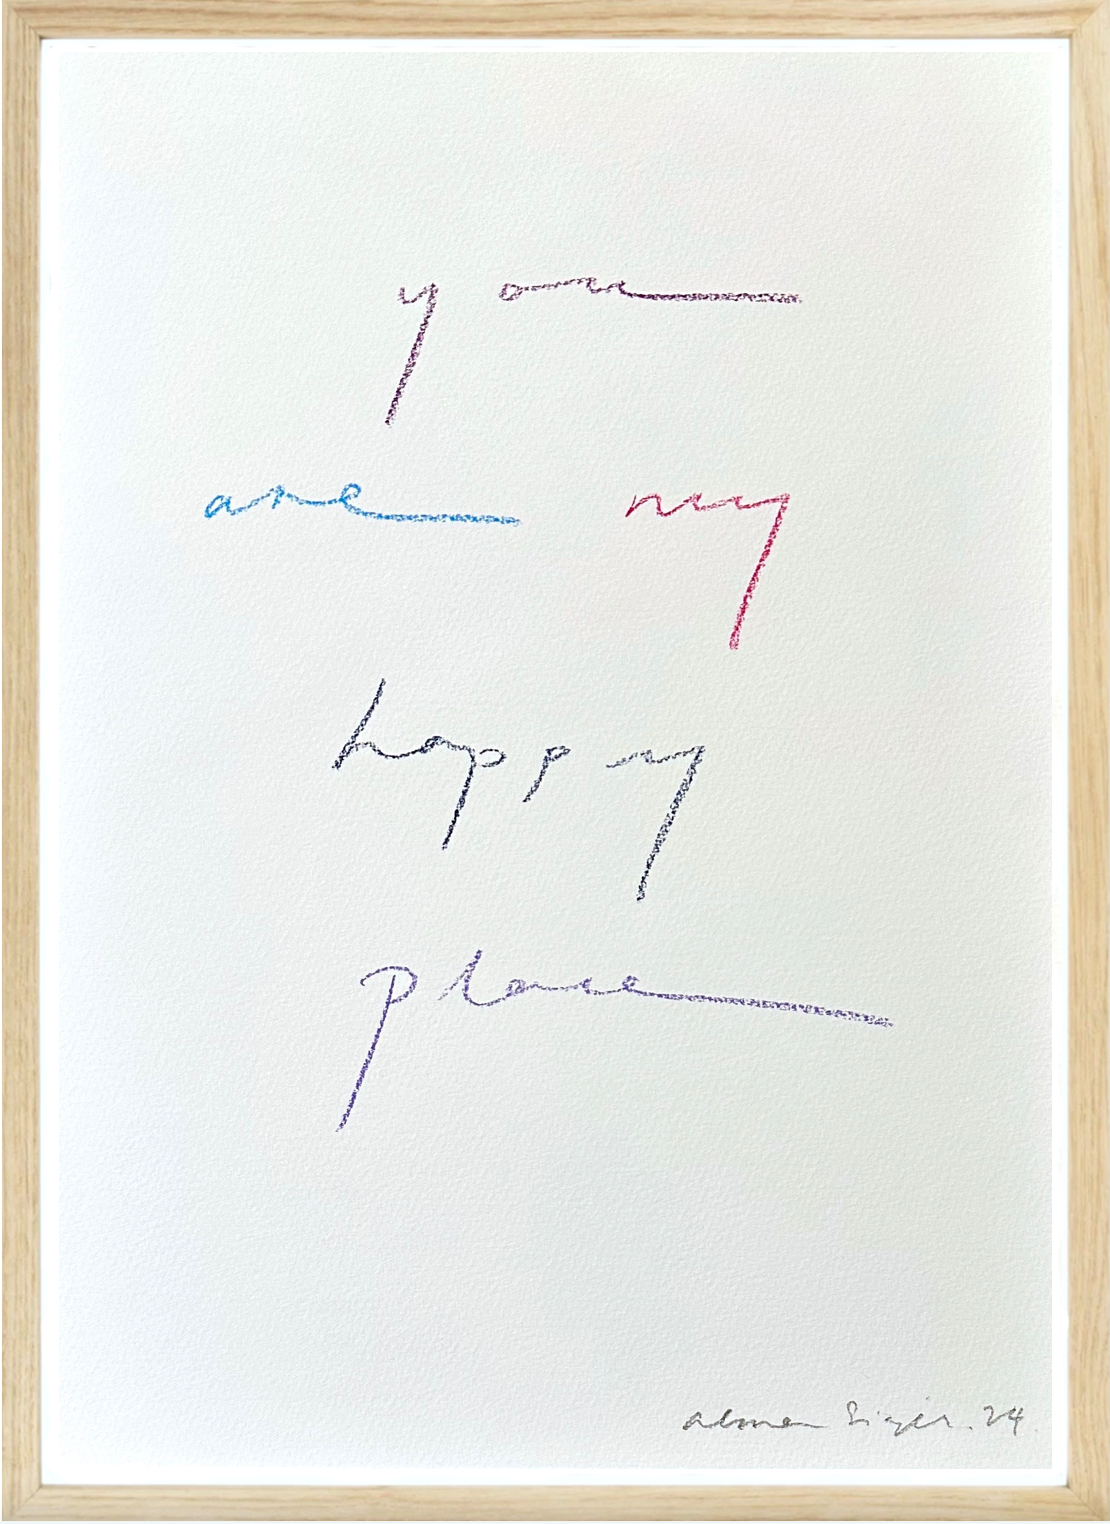 you
are my
happy
place
24